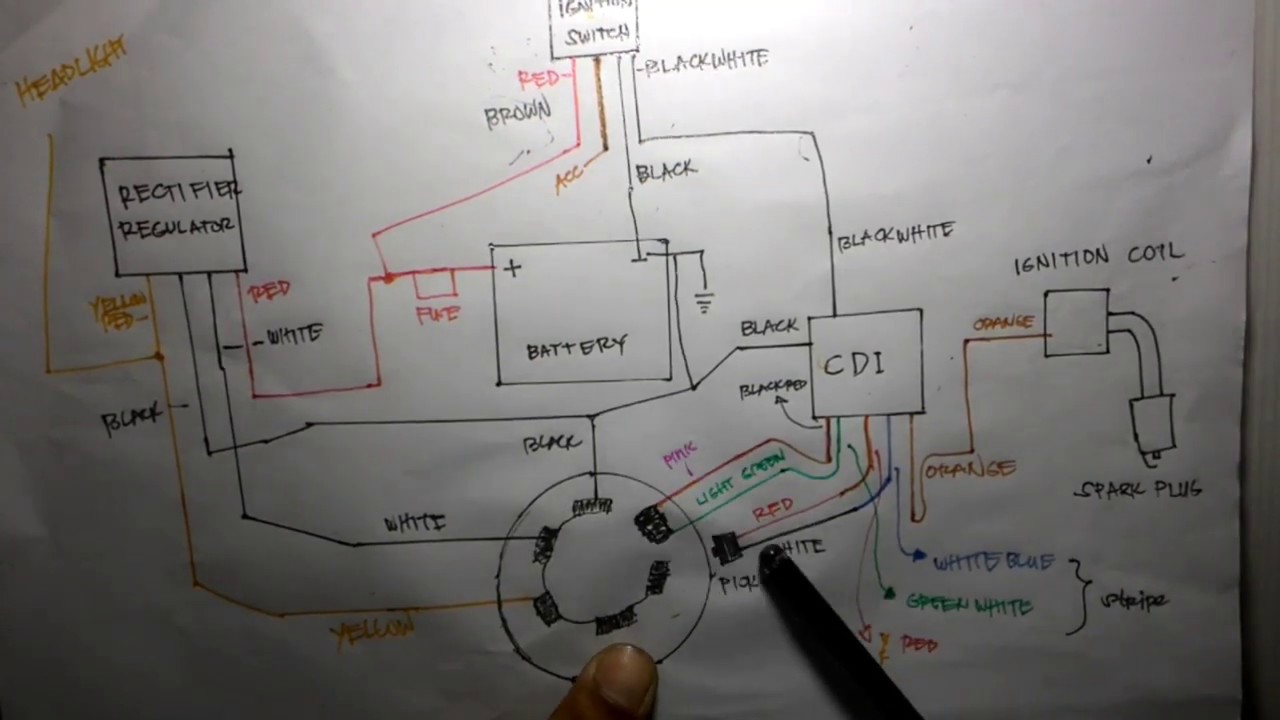 IGNITION
SWITCH
HEADLIGHT
RED
BLACKWHITE
BROWN
ACC
BLACK
RECTIFIER
REGULATOR
BLACKWHITE
IGNITION COIL
+
-
YELLOW
RED
RED
WHITE
FUSE
BATTERY
BLACK
CDI
ORANGE
BLACKRED
BLACK
BLACK
PINK
LIGHT GREEN
ORANGE
SPARK PLUG
RED
WHITE
WHITE
WHITE BLUE
GREEN WHITE
stripe
YELLOW
RED